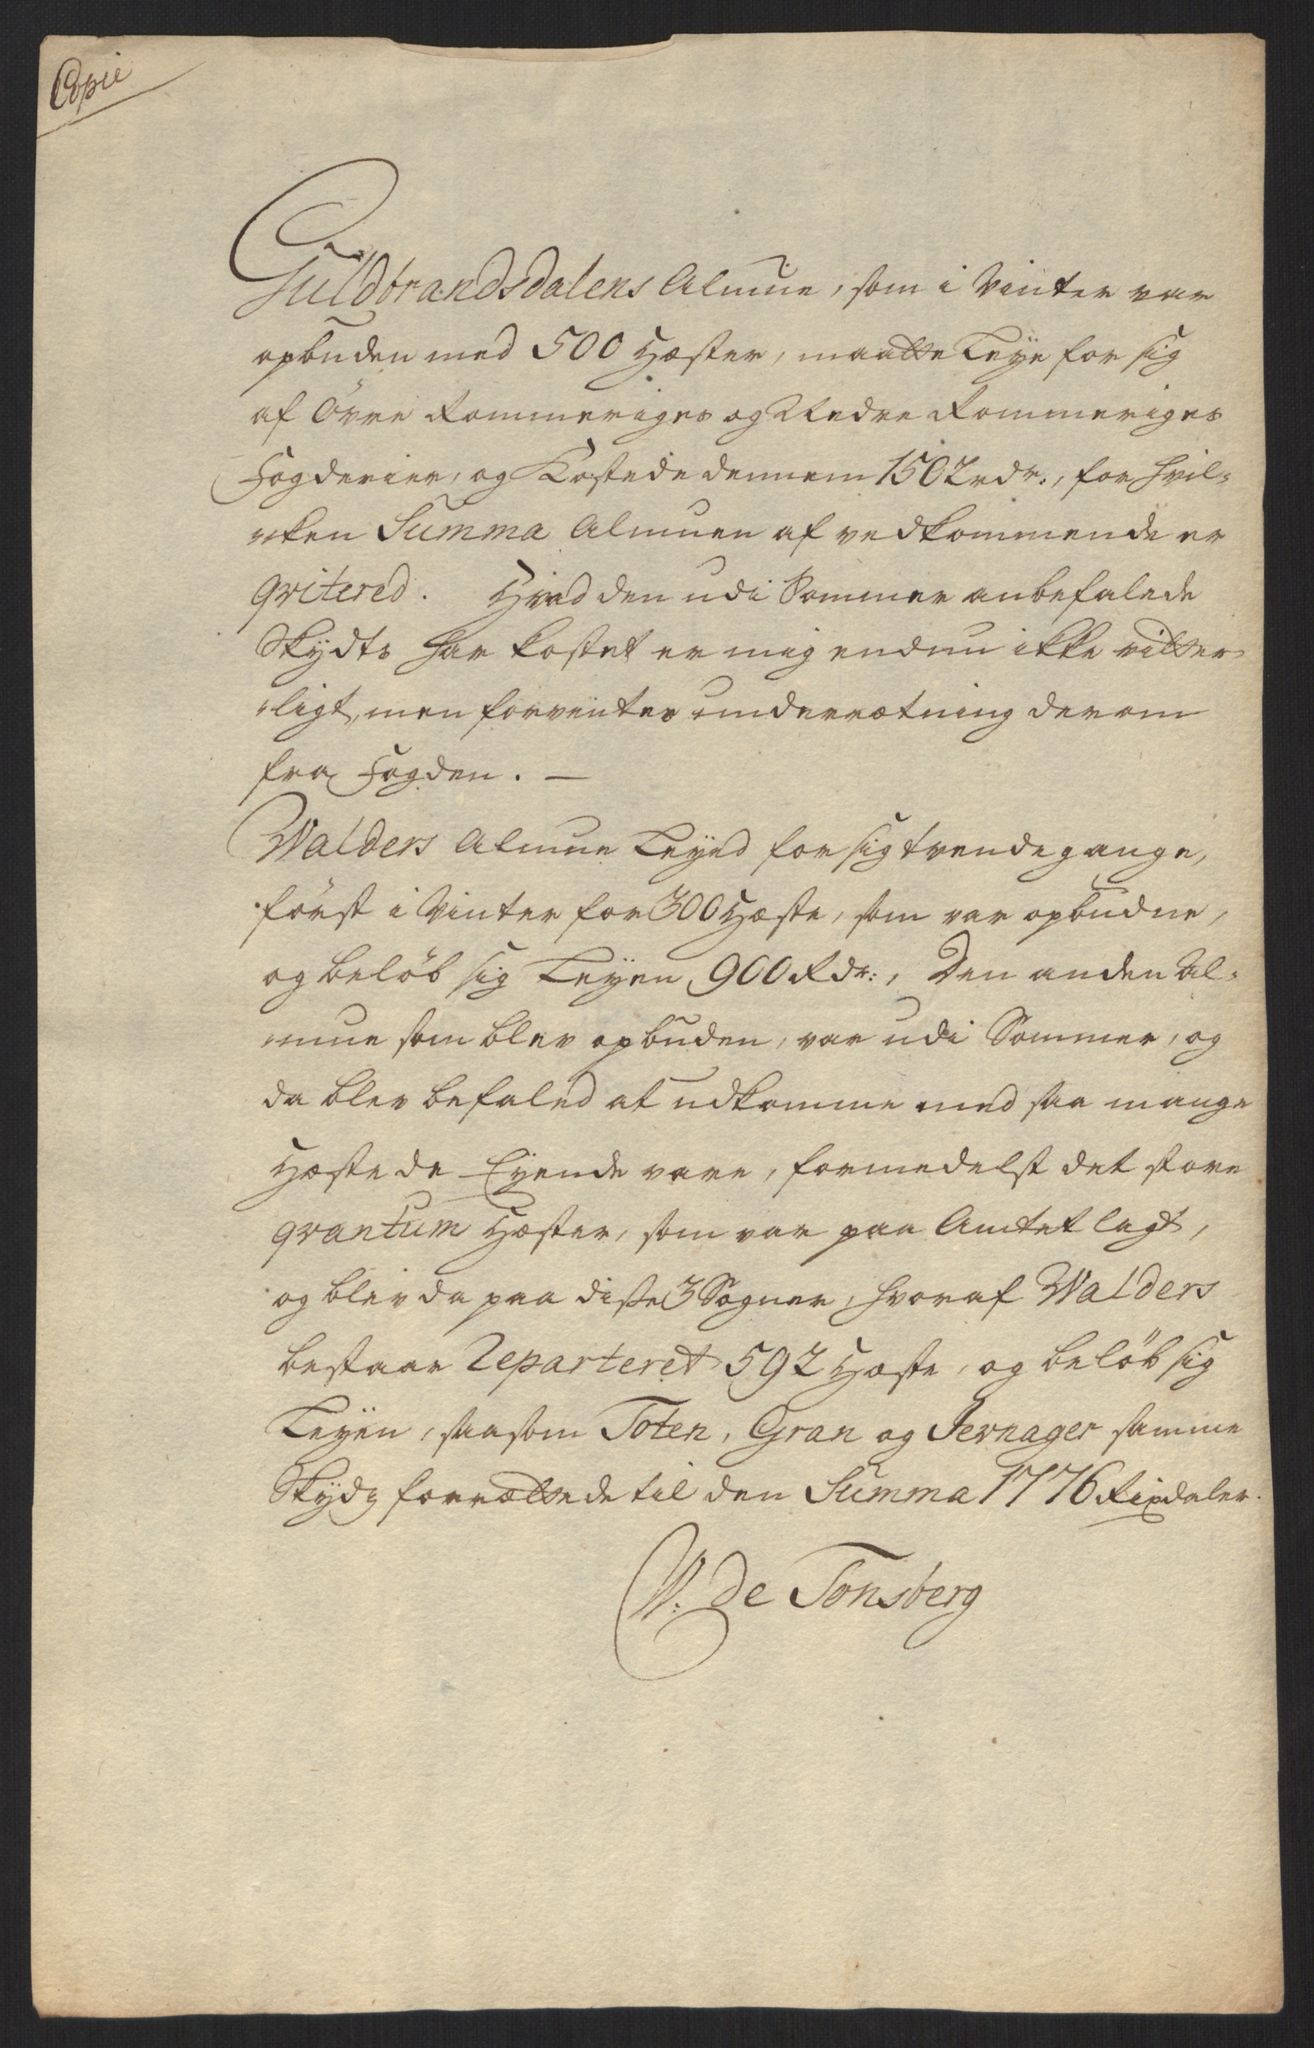 Copie
Guldbrandsdalens Almue, som i Vinter var
opbuden med 500 Hæster, maatte Leye for sig
af Övre Rommeriges og Nedre Rommeriges
Fogderier, og Kostede dennem 1502 rdr:, for hvil-
-ken Summa Almuen af vedkommende er
qvitered. Hvad den udi Sommer anbefalede
Skydts har kostet er mig endnu ikke vitter-
-ligt, men forventes underrætning derom
fra Fogden. —
Walders Almue Leyed for sig tvende gange,
först i Vinter for 300 Hæste, som var opbudne,
og belöb sig Leyen 900 Rdr:, Den anden Al-
-mue som blev opbuden, var udi Sommer, og
da blev befaled at udkomme med saa mange
Hæste de Eyende vare, formedelst det store
qvantum Hæster, som var paa Amtet lagt,
og blev da paa disse 3 Sogner, hvoraf Walders
bestaar Reparteret 592 Hæste, og belöb sig
Leyen, saasom Toten, Gran og Jevnager samme
Skyds forrættede til den Summa 1776 Rixdaler.
W: de Tonsberg